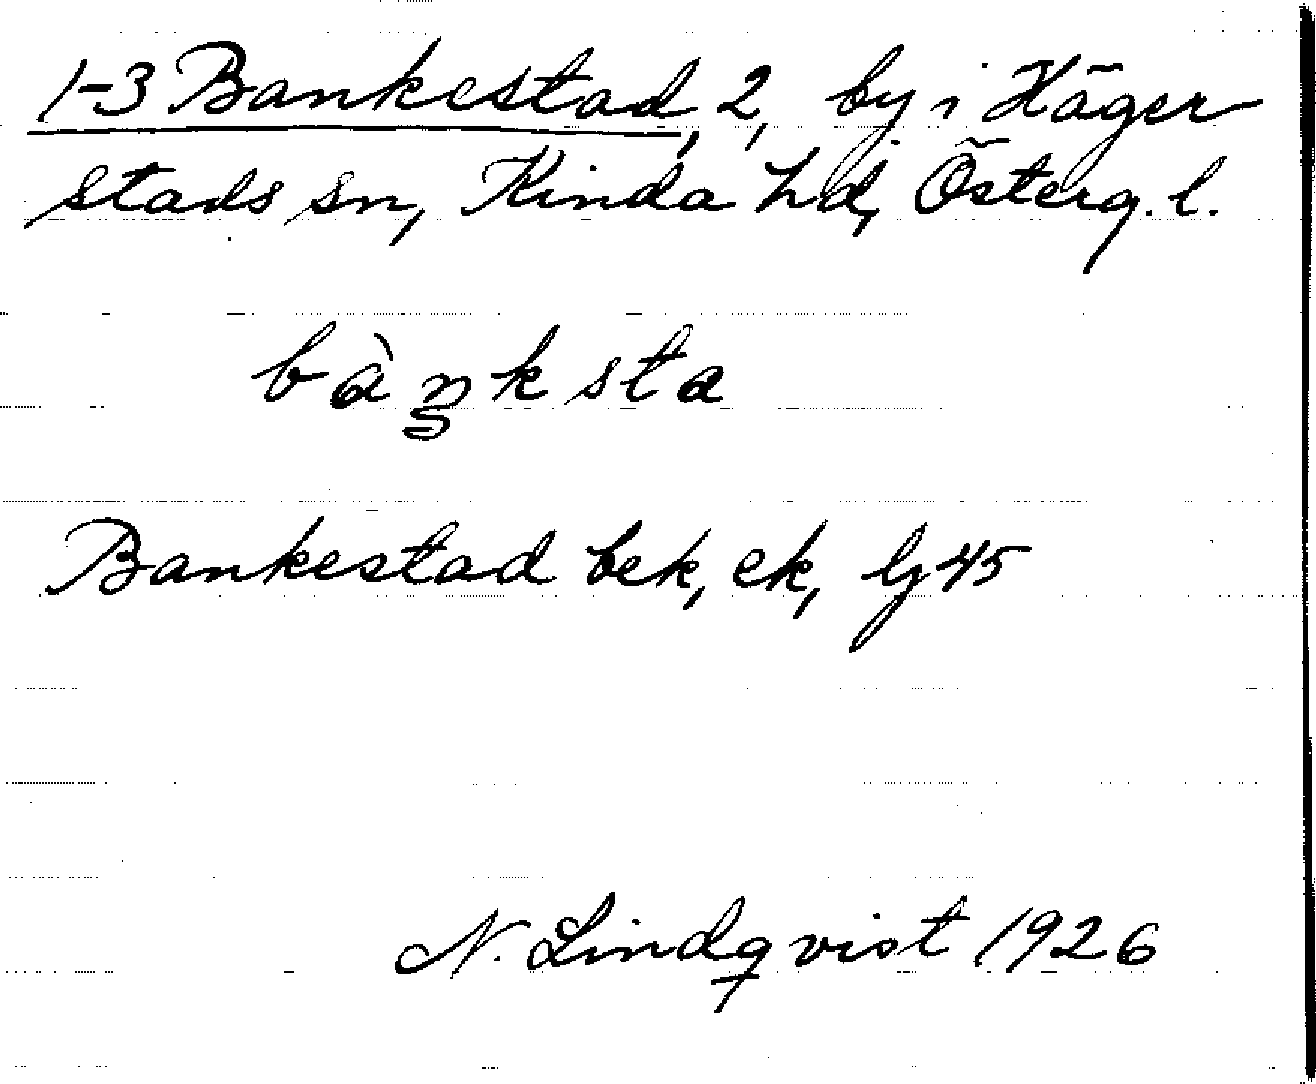 1-3 Bankestad, 2, by i Häger
stads sn, Kinda hd, Österg. l.
bàŋksta
Bankestad bek, ek, lj 45
N. Lindqvist 1926